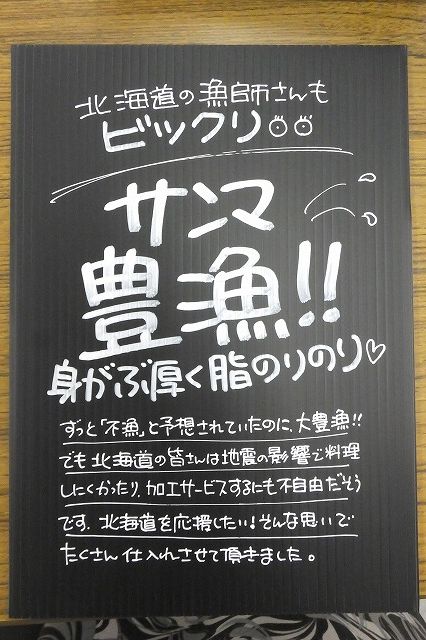 北海道の漁師さんも
ビックリ
サンマ
豊漁!!
身がぶ厚く脂のりのり♡
ずっと「不漁」と予想されていたのに、大豊漁!!
でも北海道の皆さんは地震の影響で料理
しにくかったり、加工サービスするにも不自由だそう
です。北海道を応援したい!そんな思いで
たくさん仕入れさせて頂きました。